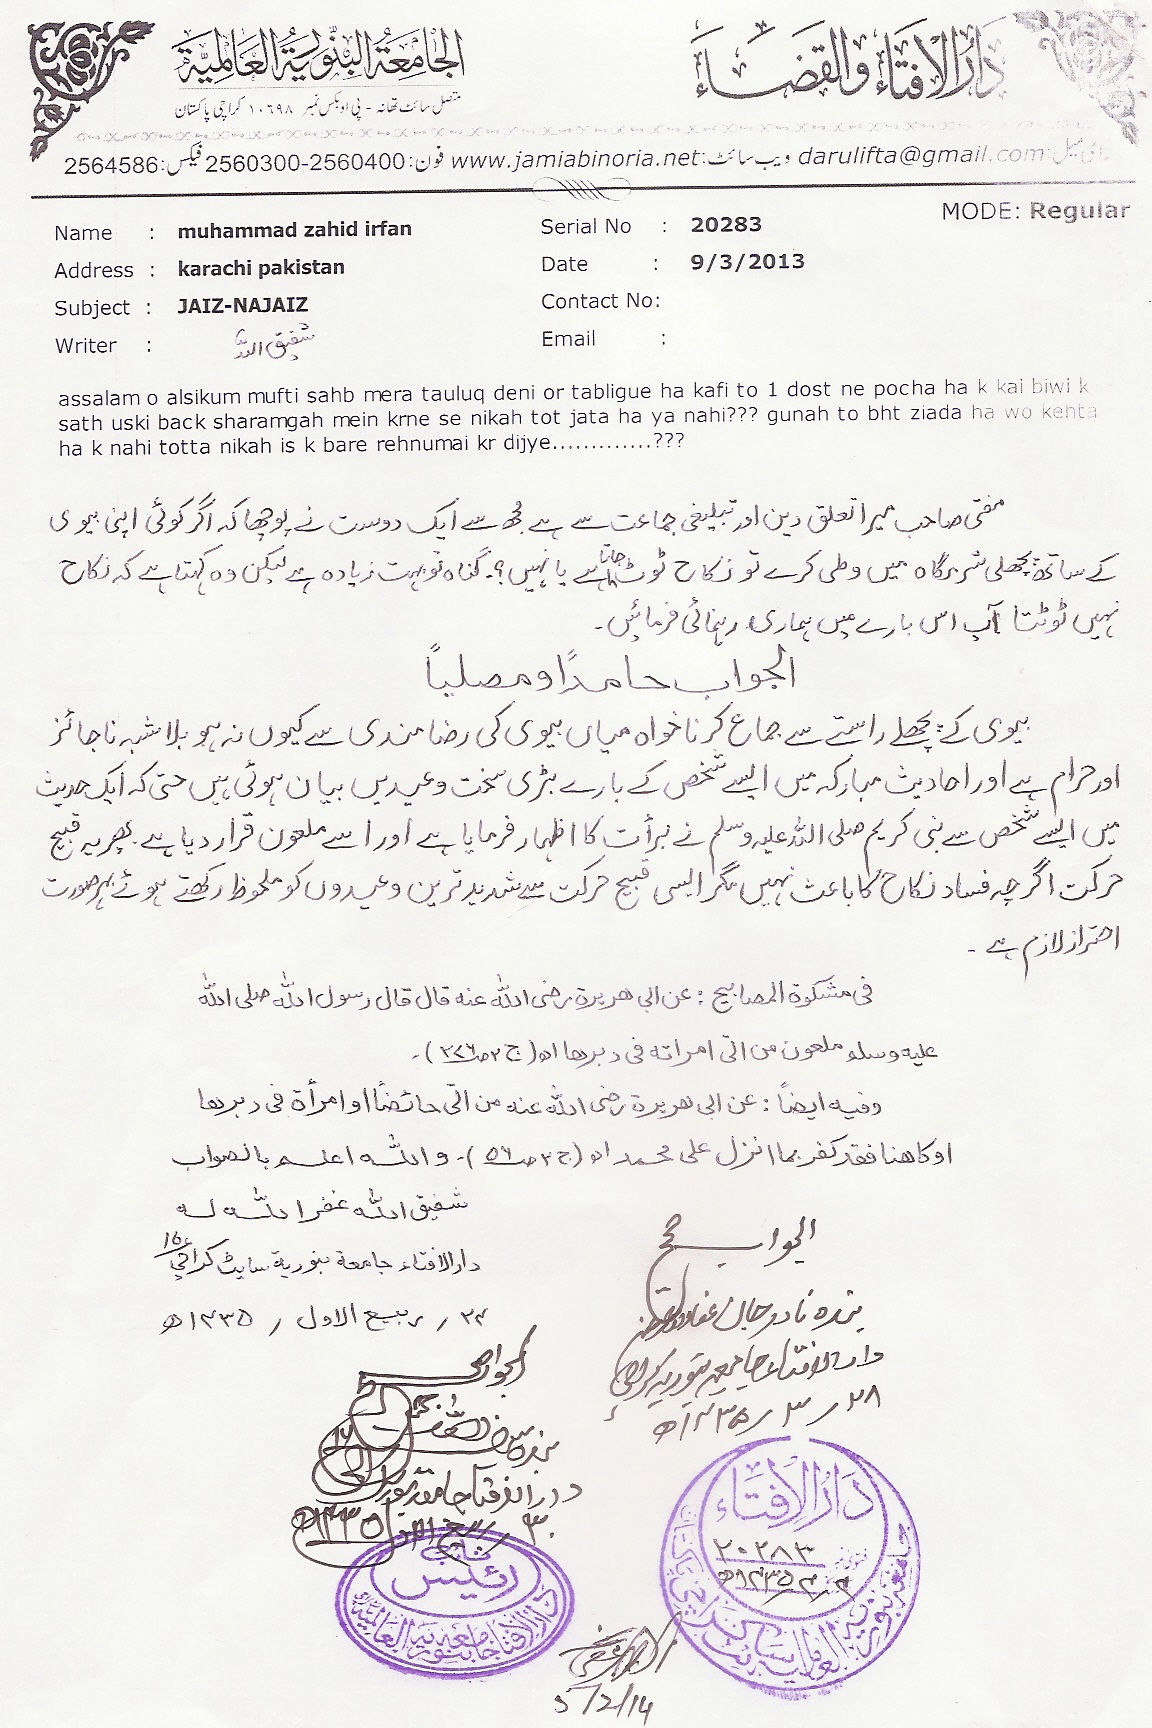 الجامعة البنورية العالمية
دار الافتاء والقضاء
متصل سائٹ تھانہ - پی او بکس نمبر ۱۰۶۹۸ کراچی پاکستان
ای میل:darulifta@gmail.com ویب سائٹ:www.jamiabinoria.net فون:2560300-2560400 فیکس:2564586
MODE: Regular
Name : muhammad zahid irfan
Serial No : 20283
Address : karachi pakistan
Date : 9/3/2013
Subject : JAIZ-NAJAIZ
Contact No:
Writer : شفیق اللہ
Email :
assalam o alsikum mufti sahb mera tauluq deni or tabligue ha kafi to 1 dost ne pocha ha k kai biwi k
sath uski back sharamgah mein krne se nikah tot jata ha ya nahi??? gunah to bht ziada ha wo kehta
ha k nahi totta nikah is k bare rehnumai kr dijye.............???
مفتی صاحب میرا تعلق دین اور تبلیغی جماعت سے ہے مجھ سے ایک دوست نے پوچھا کہ اگر کوئی اپنی بیوی
کے ساتھ پچھلی شرمگاہ میں وطی کرے تو نکاح ٹوٹ جاتا ہے یا نہیں؟۔ گناہ تو بہت زیادہ ہے لیکن وہ کہتا ہے کہ نکاح
نہیں ٹوٹتا آپ اس بارے میں ہماری رہنمائی فرمائیں۔
الجواب حامدًا ومصلیاً
بیوی کے پچھلے راستے سے جماع کرنا خواہ میاں بیوی کی رضا مندی سے کیوں نہ ہو بلا شبہ ناجائز
اور حرام ہے اور احادیث مبارکہ میں ایسے شخص کے بارے بڑی سخت وعیدیں بیان ہوئی ہیں حتی کہ ایک حدیث
میں ایسے شخص سے نبی کریم صلی اللہ علیہ وسلم نے برأت کا اظہار فرمایا ہے اور اسے ملعون قرار دیا ہے۔ پھر یہ قبیح
حرکت اگرچہ فساد نکاح کا باعث نہیں مگر ایسی قبیح حرکت سے شدید ترین وعیدوں کو ملحوظ رکھتے ہوئے بہر صورت
احتراز لازم ہے ۔
فی مشکوة المصابیح : عن ابی هریرة رضی الله عنه قال قال رسول الله صلی الله
علیه وسلم ملعون من اتی امراته فی دبرها اه (ج ۲ ص ۲۷۶)۔
وفیه ایضاً : عن ابی هریرة رضی الله عنه من اتی حائضًا او امرأة فی دبرها
او کاهنا فقد کفر بما انزل علی محمد اه (ج ۲ ص ۵۶)۔ والله اعلم بالصواب
شفیق الله غفر الله له
دار الافتاء جامعة بنوریة سایٹ کراچی
۲۲ / ربیع الاول / ۱۴۳۵ھ
الجواب صحیح
بندہ نادر جان
دار الافتاء جامعہ بنوریہ کراچی
۲۸ / ۳ / ۱۴۳۵ھ
الجواب صحیح
دار الافتاء جامعہ بنوریہ
۳۰ ربیع الاول ۱۴۳۵ھ
نائب
رئیس
دار الافتاء جامعہ بنوریہ العالمیۃ
دار الافتاء
۲۰۲۸۳
5/2/14